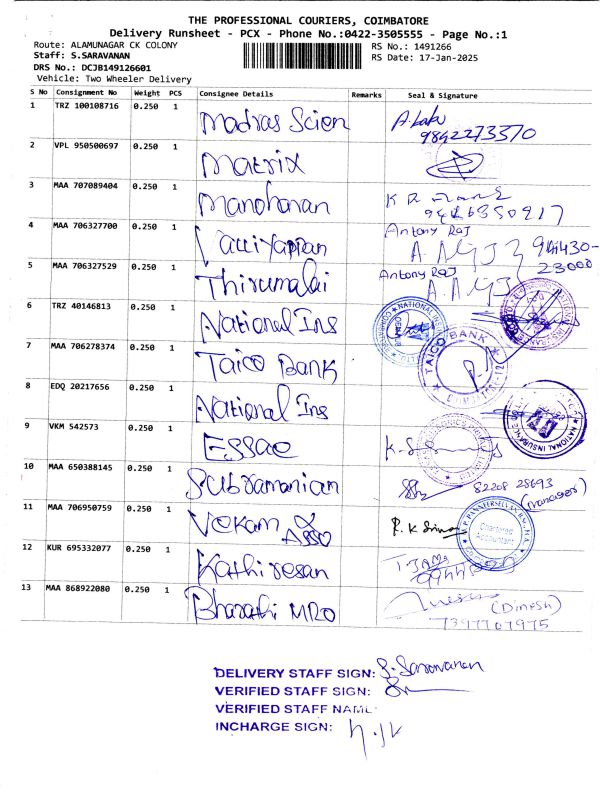 THE PROFESSIONAL COURIERS, COIMBATORE
Delivery Runsheet - PCX - Phone No.:0422-3505555 - Page No.:1
Route: ALAMUNAGAR CK COLONY
RS No.: 1491266
Staff: S.SARAVANAN
RS Date: 17-Jan-2025
DRS No.: DCJB149126601
Vehicle: Two Wheeler Delivery
S No Consignment No Weight PCS Consignee Details Remarks Seal & Signature
1 TRZ 100108716 0.250 1 Madras Scien
9842273370
2 VPL 950500697 0.250 1 Matrix
3 MAA 707089404 0.250 1 Manoharan
4 MAA 706327700 0.250 1 Antony Raj
94430-
23000
5 MAA 706327529 0.250 1 Thirumalai Antony Raj
6 TRZ 40146813 0.250 1 National Ins
7 MAA 706278374 0.250 1 Taico Bank TAICO BANK
8 EDQ 20217656 0.250 1 National Ins NATIONAL INSURANCE
9 VKM 542573 0.250 1 ESSae
10 MAA 650388145 0.250 1 Subramanian
82208 25693
(Manager)
11 MAA 706950759 0.250 1 Vekam Asso R. K
Chartered
Accountant
12 KUR 695332077 0.250 1 Kathiresan
13 MAA 868922080 0.250 1 Bharathi MRO (Dinesh)
DELIVERY STAFF SIGN: S. Saravanan
VERIFIED STAFF SIGN:
VERIFIED STAFF NAME:
INCHARGE SIGN: